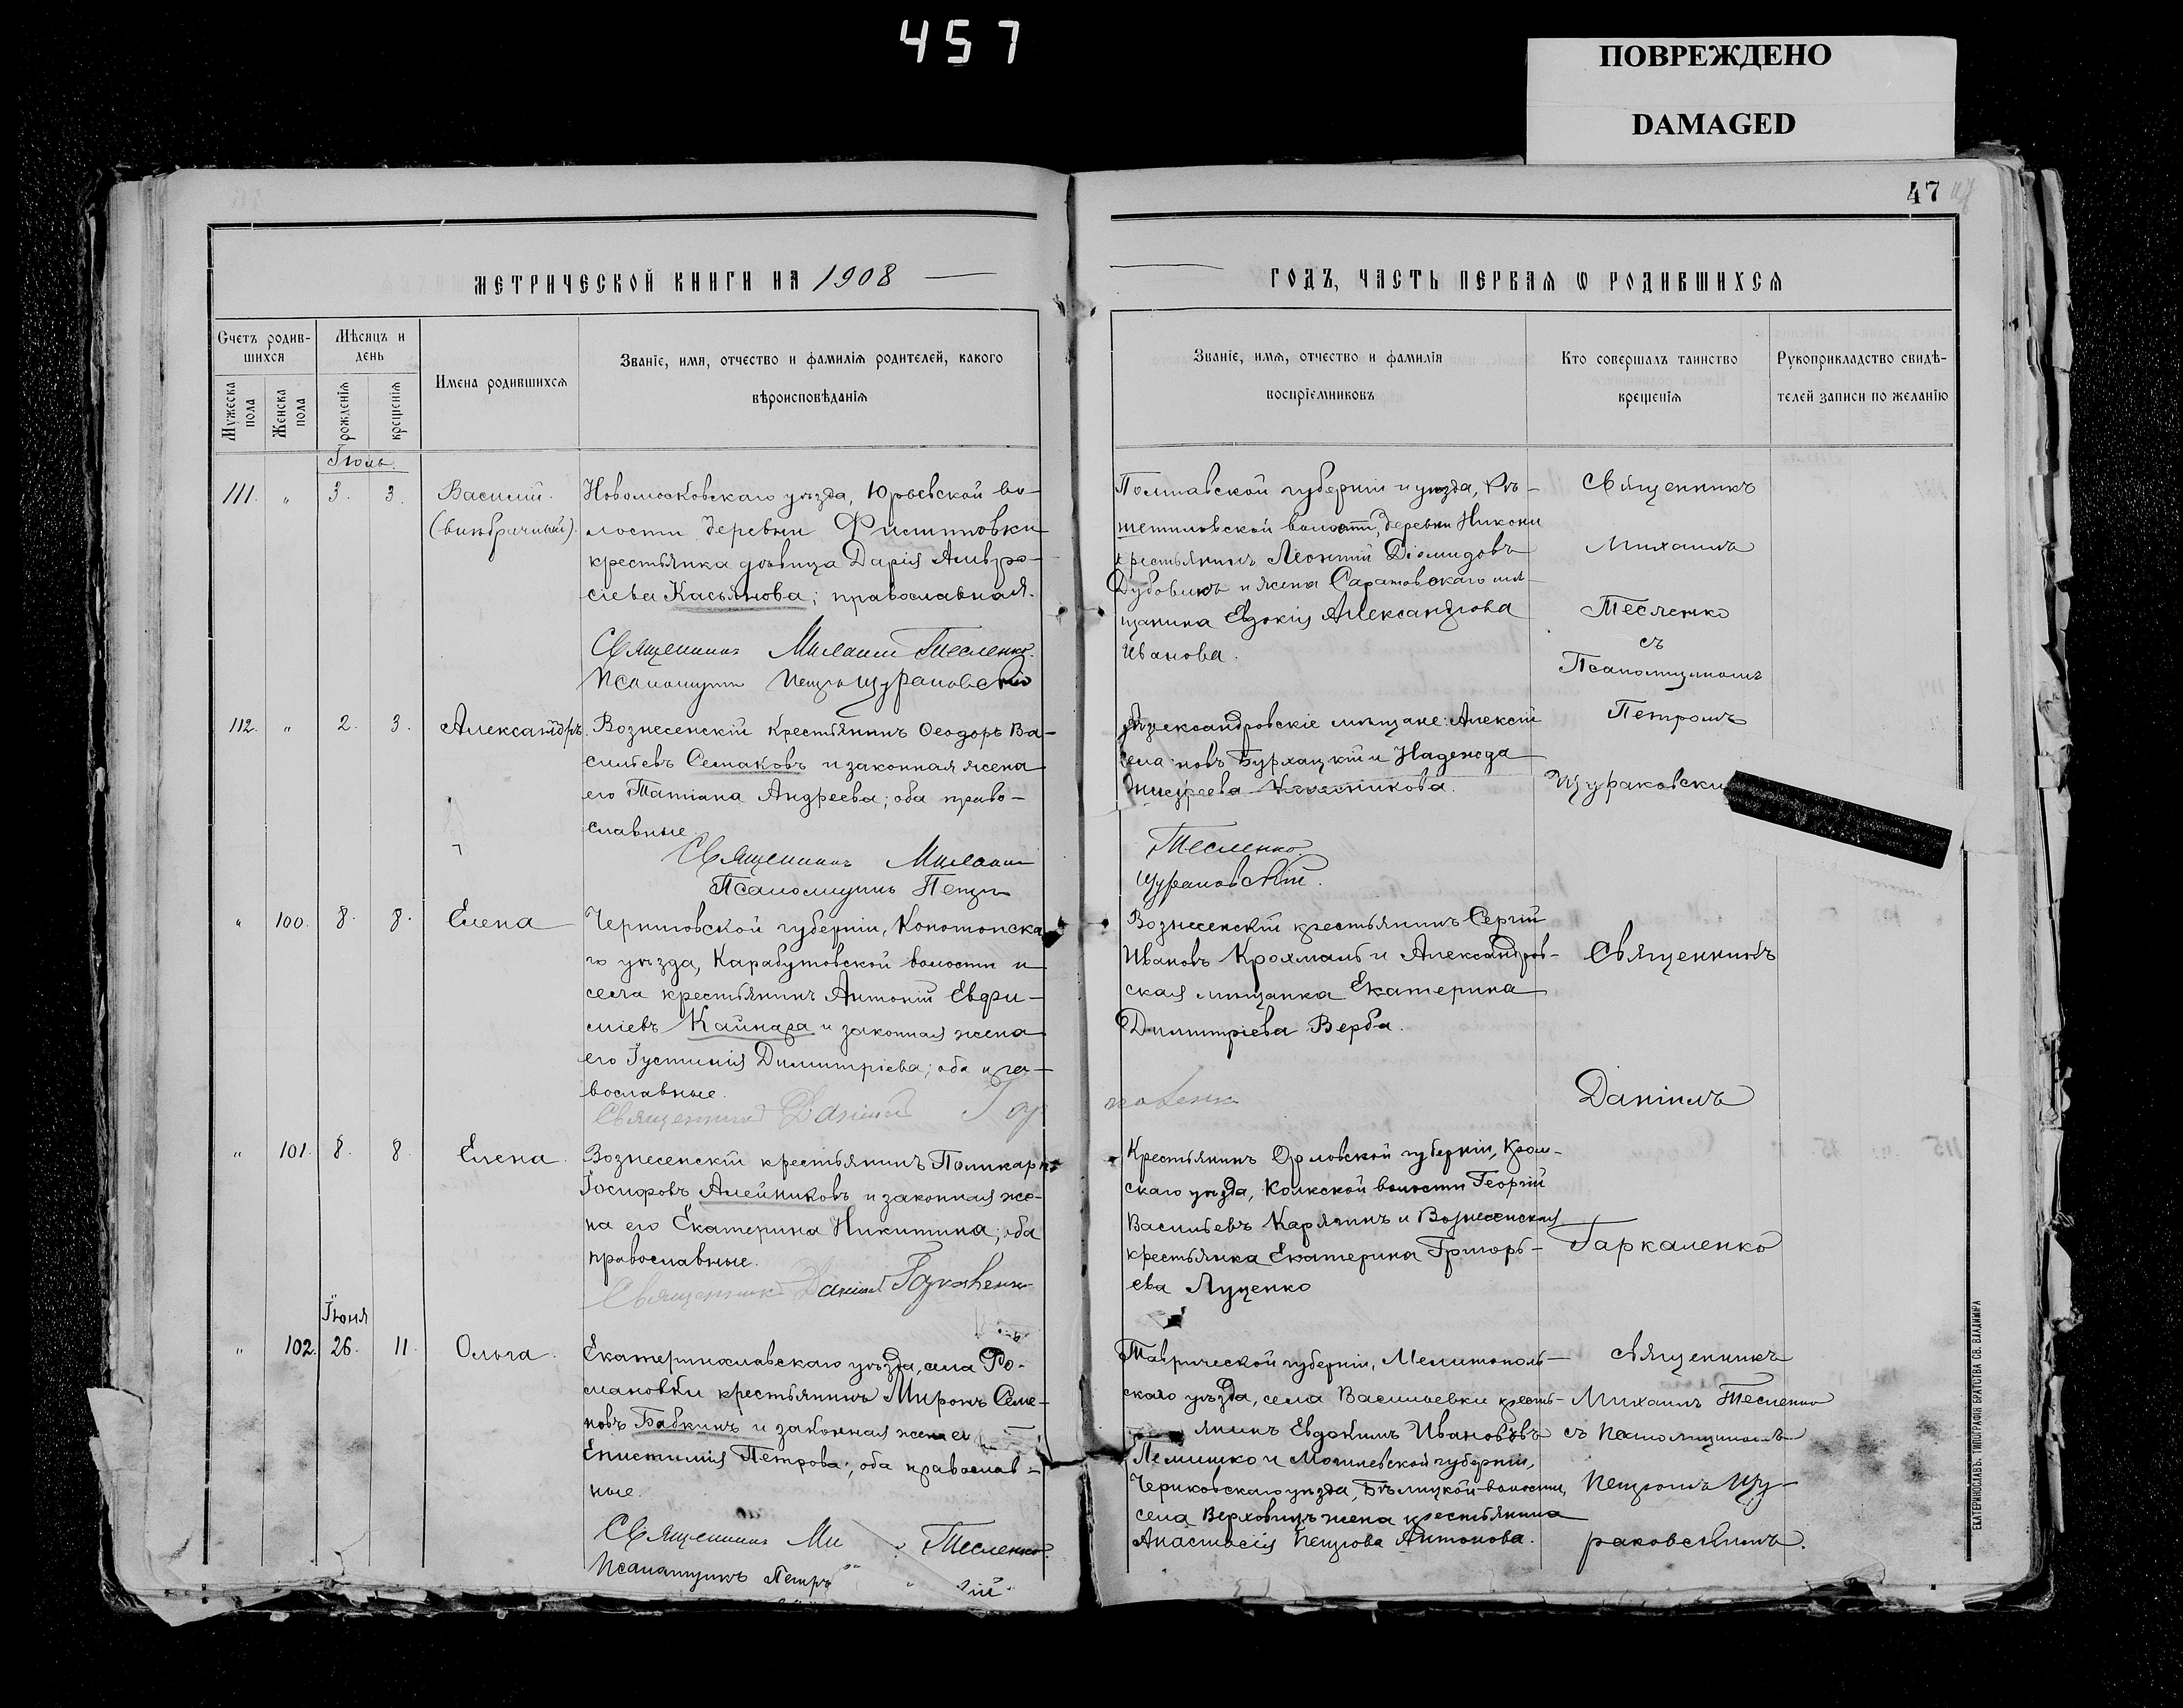 457
ПОВРЕЖДЕНО
DAMAGED
47
МЕТРИЧЕСКОЙ КНИГИ НА 1908
ГОДЪ, ЧАСТЬ ПЕРВАЯ Ѡ РОДИВШИХСЯ
Счетъ родив-
шихся
Мужеска пола
Женска пола
Мѣсяцъ и
день
рожденія
крещенія
Имена родившихся
Званіе, имя, отчество и фамилія родителей, какого
вѣроисповѣданія
Званіе, имя, отчество и фамилія
воспріемниковъ
Кто совершалъ таинство
крещенія
Рукоприкладство свидѣ-
телей записи по желанію
Іюль
111. " 3. 3. Василій.
(внѣбрачный).
Новомосковскаго уѣзда, Юрьевской во-
лости деревни
крестьянка дѣвица Дарія Амвро-
сіева Касьянова; православная.
Священникъ Михаилъ Тесленко.
Псаломщикъ Петръ Щураковскій
Полтавской губерніи и уѣзда, Рѣ-
шетиловской волости, деревни
крестьянинъ Леонтій Діомидовъ
Дубовикъ и жена Саратовскаго мѣ-
щанина Евдокія Александрова
Иванова.
Священникъ
Михаилъ
Тесленко
съ
Псаломщикомъ
Петромъ
112. " 2. 3. Александръ.
Вознесенскій крестьянинъ Ѳеодоръ Ва-
сильевъ Семаковъ и законная жена
его Татіана Андреева; оба право-
славные.
Священникъ Михаилъ
Псаломщикъ Петръ
Александровскіе мѣщане: Алексій
новъ Бурхацкій и Надежда
Тесленко
Щураковскій.
" 100. 8. 8. Елена
Черниговской губерніи, Конотопска
го уѣзда, Карабутовской волости и
села крестьянинъ Антоній Евфи-
міевъ Кайнара и законная жена
его Іустинія Димитріева; оба пра-
вославные.
Священникъ Даніилъ
Вознесенскій крестьянинъ Сергій
Ивановъ Крохмаль и Александров-
ская мѣщанка Екатерина
Димитріева Верба.
Священникъ
Даніилъ
Гаркаленко
" 101. 8. 8. Елена.
Вознесенскій крестьянинъ Поликарпъ
Іосифовъ Алейниковъ и законная же-
на его Екатерина Никитина; оба
православные.
Священникъ Даніилъ
Крестьянинъ Орловской губерніи, Кром-
скаго уѣзда, Колкской волости Георгій
Васильевъ Карячинъ и Вознесенская
крестьянка Екатерина Григорь-
ева Луценко
Іюня
" 102. 26. 11. Ольга.
Екатеринославскаго уѣзда, села Ро-
мановки крестьянинъ Миронъ Семе-
новъ Бабкинъ и законная жена его
Епистимія Петрова; оба православ-
ные.
Священникъ Ми Тесленко.
Псаломщикъ Петръ кій
Таврической губерніи, Мелитополь-
скаго уѣзда, села Васильевки кресть-
янинъ Евдокимъ Ивановъ
Лемишко и Могилевской губерніи,
Чериковскаго уѣзда, Бѣлицкой волости,
села Верховцъ жена крестьянина
Анастасія Петрова Антонова.
священникъ
Михаилъ Тесленко
съ псаломщикомъ
Петромъ Щу-
раковскимъ.
ЕКАТЕРИНОСЛАВЪ. ТИПОГРАФІЯ БРАТСТВА СВ. ВЛАДИМІРА